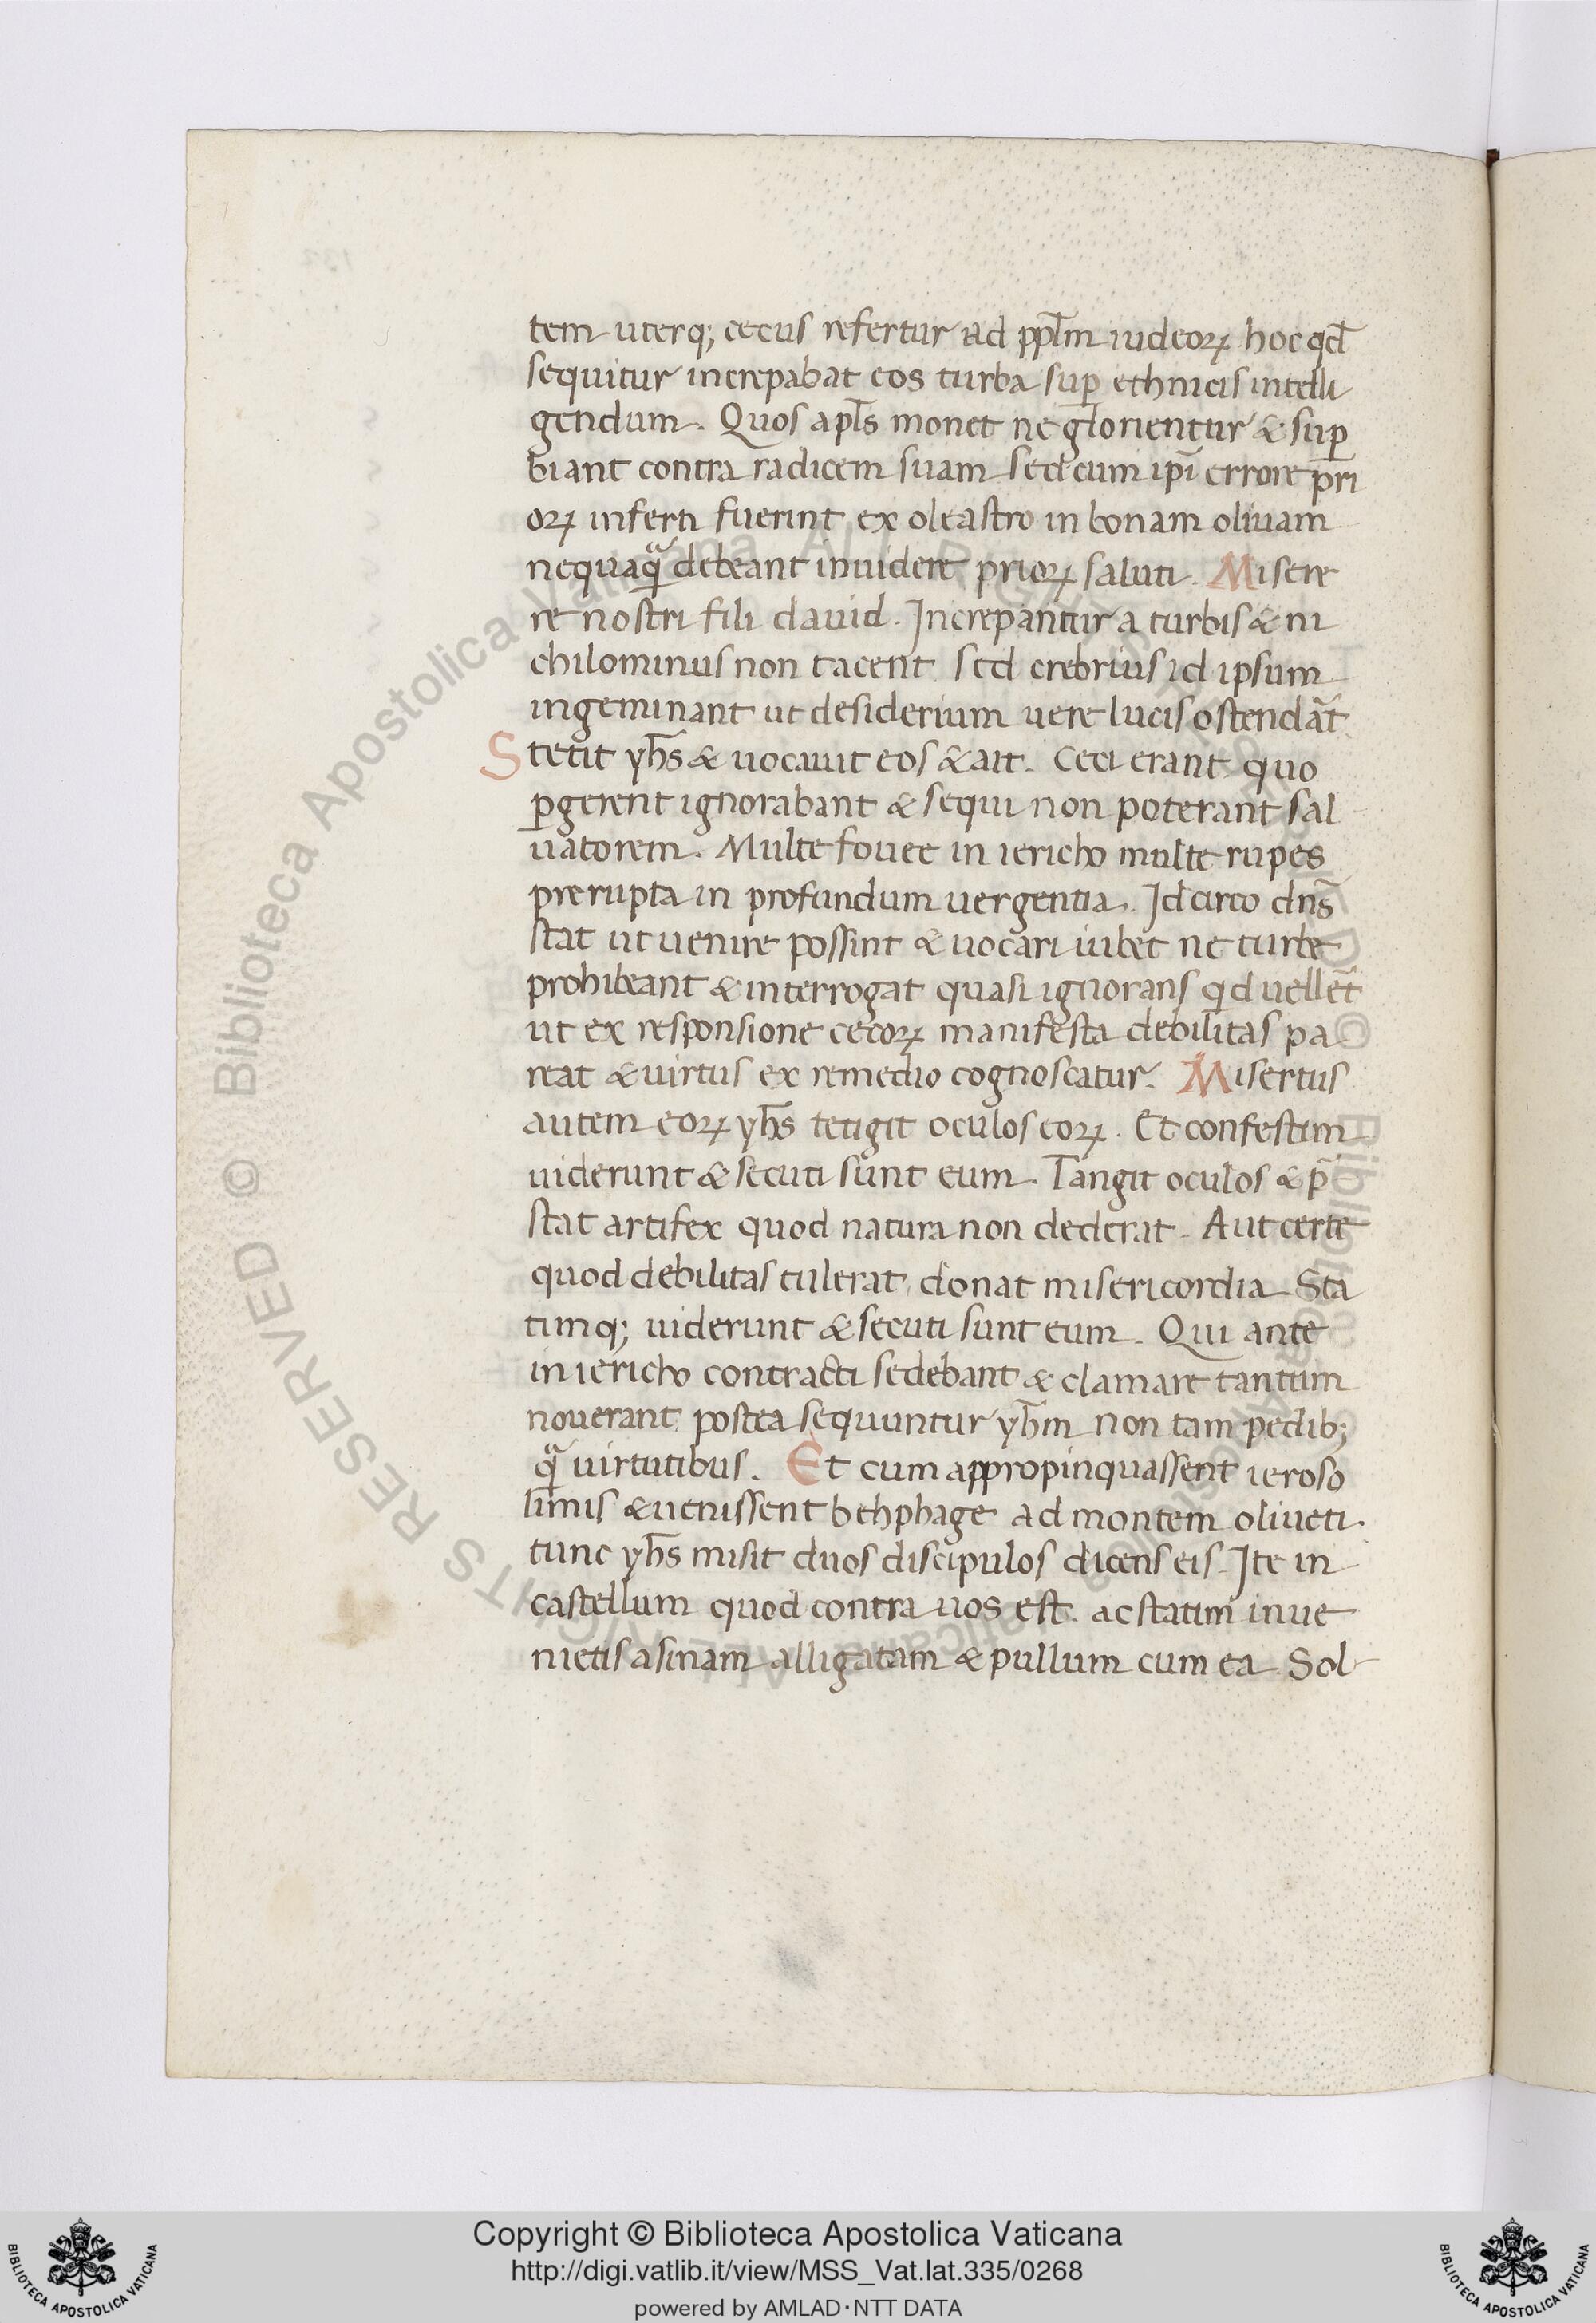 tem uterq; cecus refertur ad pplm̄ iudeoꝝ hoc qd̄
sequitur increpabat eos turba suꝑ ethnicis intelli
gendum. Quos apl̄s monet ne glorientur & suꝑ
biant contra radicem suam sed cum ip̄i errore pri
oꝝ inserti fuerint ex oleastro in bonam oliuam
nequaqᷓ debeant inuidere prioꝝ saluti. Misere
re nostri fili dauid. Increpantur a turbis & ni
chilominus non tacent sed crebrius id ipsum
ingeminant ut desiderium uere lucis ostendāt.
Stetit yh̄s & uocauit eos & ait. Ceci erant quo
ꝑgerent ignorabant & sequi non poterant sal
uatorem. Multe fouee in iericho multe rupes
prerupta in profundum uergentia. Idcirco dn̄s
stat ut uenire possint & uocari iubet ne turbe
prohibeant & interrogat quasi ignorans qd uellēt
ut ex responsione cecoꝝ manifesta debilitas pa
reat & uirtus ex remedio cognoscatur. Misertus
autem eoꝝ yh̄s tetigit oculos eoꝝ. Et confestim
uiderunt & secuti sunt eum. Tangit oculos & p̄
stat artifex quod natura non dederat. Aut certe
quod debilitas tulerat donat misericordia. Sta
timq; uiderunt & secuti sunt eum. Qui ante
in iericho contracti sedebant & clamare tantum
nouerant postea sequuntur yh̄m non tam pedib;
qᷓ uirtutibus. Et cum appropinquassent ieroso
limis & uenissent bethphage ad montem oliueti.
tunc yh̄s misit duos discipulos dicens eis. Ite in
castellum quod contra uos est. ac statim inue
nietis asinam alligatam & pullum cum ea. Sol
© Biblioteca Apostolica Vaticana ALL RIGHTS RESERVED
Copyright © Biblioteca Apostolica Vaticana
http://digi.vatlib.it/view/MSS_Vat.lat.335/0268
powered by AMLAD·NTT DATA
BIBLIOTECA APOSTOLICA VATICANA
BIBLIOTECA APOSTOLICA VATICANA